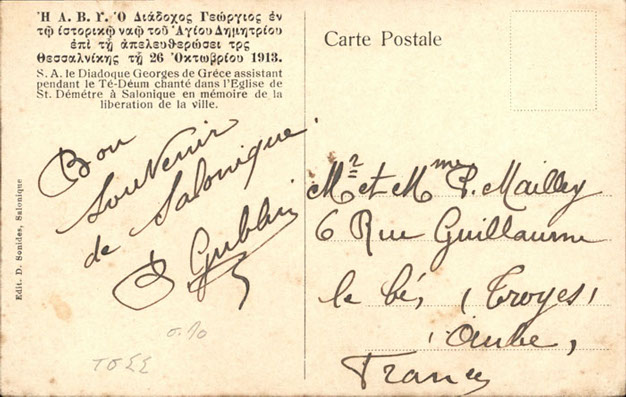 Ἡ Α. Β. Υ. Ὁ Διάδοχος Γεώργιος ἐν
τῷ ἱστορικῷ ναῷ τοῦ Ἁγίου Δημητρίου
ἐπὶ τῇ ἀπελευθερώσει τρς
Θεσσαλνίκης τῇ 26 Ὀκτωβρίου 1913.
S. A. le Diadoque Georges de Grèce assistant
pendant le Té-Déum chanté dans l'Eglise de
St. Démétre à Salonique en mémoire de la
liberation de la ville.
Bon
souvenir
de Salonique.
Edit. D. Sonides, Salonique
Carte Postale
Mr et Mme P. Mailley
6 Rue Guillaume
le bé, (Troyes)
Aube,
France